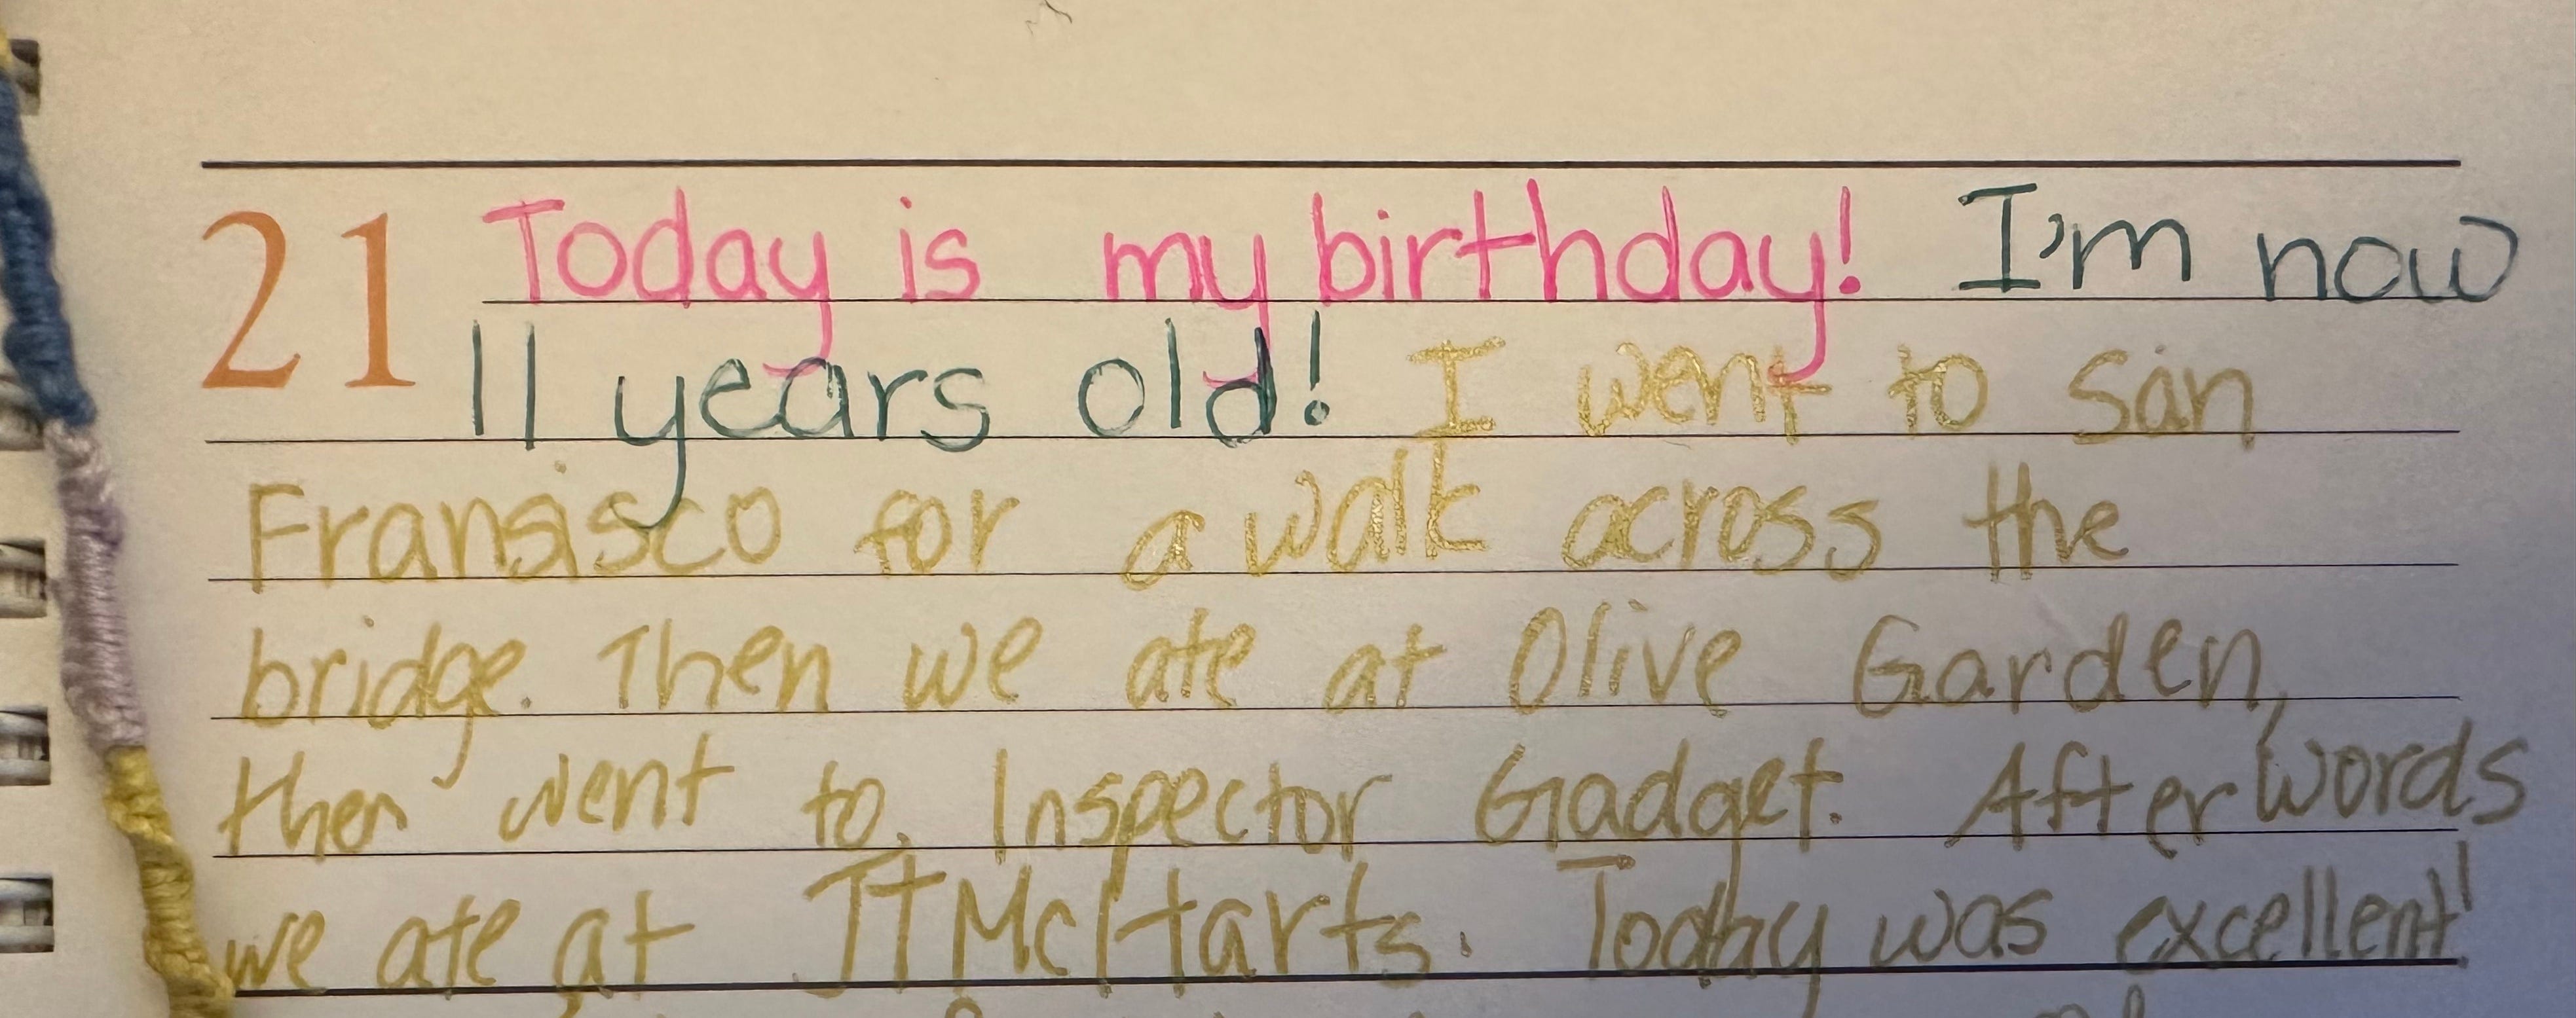 21 Today is my birthday! I'm now
11 years old! I went to San
Fransisco for a walk across the
bridge. Then we ate at Olive Garden,
then went to Inspector Gadget. Afterwords
we ate at JT McHarts. Today was excellent!